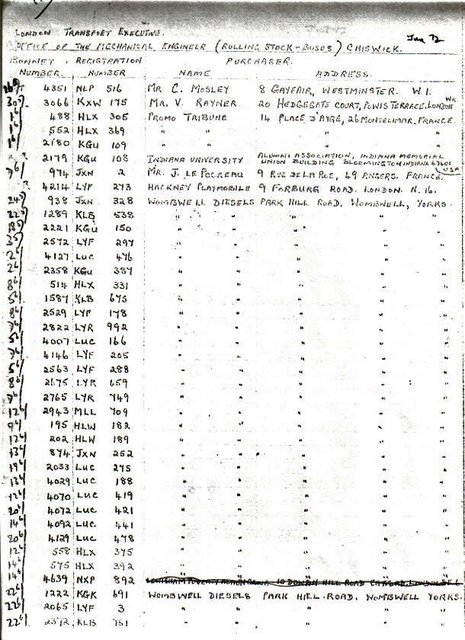 Jan 72
LONDON TRANSPORT EXECUTIVE.
OFFICE OF THE MECHANICAL ENGINEER (ROLLING STOCK-BUSES) CHISWICK.
BONNET REGISTRATION PURCHASER.
NUMBER. NUMBER. NAME ADDRESS.
4351 NLP 516 MR C. MOSLEY 8 GAYFAIR, WESTMINSTER W.1.
3066 KXW 175 MR. V. RAYNER 20 HEDGEGATE COURT, POWIS TERRACE, LONDON W11
488 HLX 305 PROMO TRIBUNE 14 PLACE D'AYGE, 26 MONTELIMAR. FRANCE.
552 HLX 369 " "
2180 KGU 109 " "
2179 KGU 108 INDIANA UNIVERSITY ALUMNI ASSOCIATION, INDIANA MEMORIAL
UNION BUILDING BLOOMINGTON INDIANA 47401 USA
974 JXN 2 MR. J. LE POCREAU 9 RUE DE LA ROE, 49 ANGERS. FRANCE.
4214 LYF 273 HACKNEY PLAYMOBILE 9 FORBURG ROAD. LONDON. N.16.
938 JXN 328 WOMBWELL DIESELS PARK HILL ROAD. WOMBWELL, YORKS.
1289 KLB 538 " " " " "
2221 KGU 150 " " " " "
2572 LYF 297 " " " " "
4127 LUC 476 " " " " "
2358 KGU 387 " " " " "
514 HLX 331 " " " " "
1587 KLB 675 " " " " "
2529 LYF 178 " " " " "
2822 LYR 992 " " " " "
4007 LUC 166 " " " " "
4146 LYF 205 " " " " "
2563 LYF 288 " " " " "
2675 LYR 659 " " " " "
2765 LYR 749 " " " " "
2943 MLL 709 " " " " "
195 HLW 182 " " " " "
202 HLW 189 " " " " "
874 JXN 252 " " " " "
2033 LUC 275 " " " " "
4029 LUC 188 " " " " "
4070 LUC 419 " " " " "
4072 LUC 421 " " " " "
4092 LUC 441 " " " " "
4129 LUC 478 " " " " "
558 HLX 375 " " " " "
575 HLX 392 " " " " "
4639 NXP 892
1222 KGK 691 WOMBWELL DIESELS PARK HILL ROAD. WOMBWELL YORKS.
2065 LYF 3 " " " " "
2372 KLB 751 " " " " "